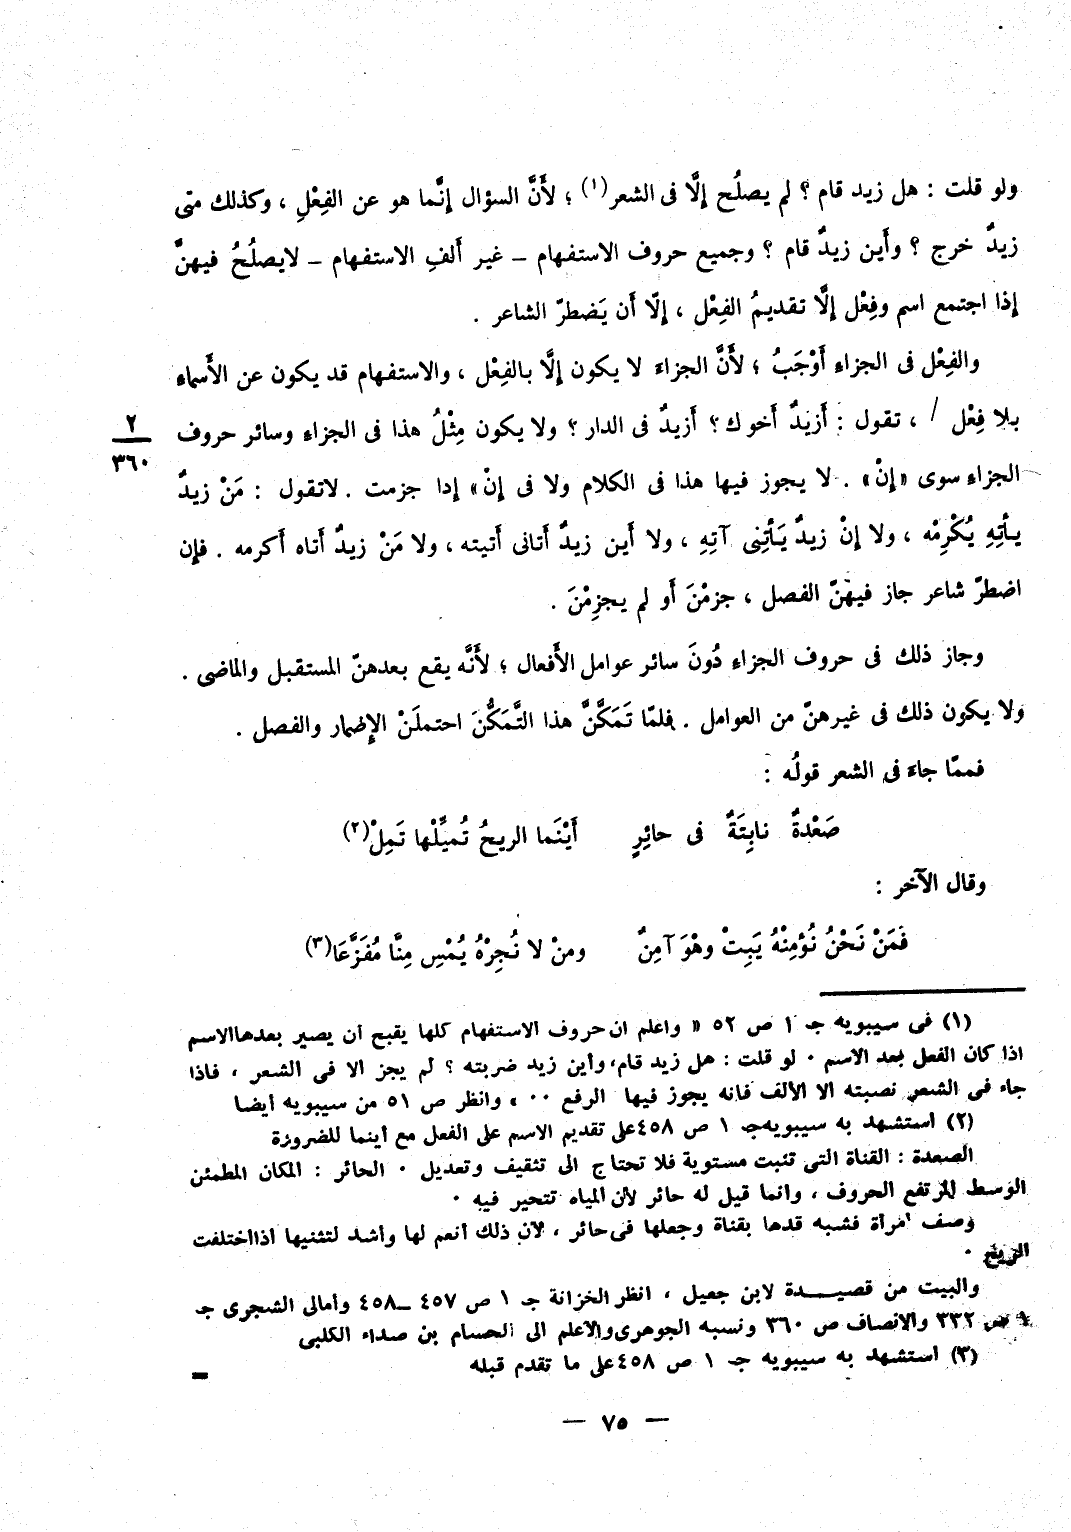 ولو قلت : هل زيد قام ؟ لم يصلُح إلَّا فى الشعر(١) ؛ لأَنَّ السؤال إنَّما هو عن الفِعْلِ ، وكذلك متى
زيدٌ خرج ؟ وأَين زيدٌ قام ؟ وجميع حروف الاستفهام – غير أَلفِ الاستفهام – لايصلُحُ فيهنَّ
إذا اجتمع اسم وفِعْل إلَّا تقديمُ الفِعْل ، إلّا أَن يَضطرّ الشاعر .
والفِعْل فى الجزاءِ أَوْجَبُ ؛ لأَنَّ الجزاءَ لا يكون إلَّا بالفِعْل ، والاستفهام قد يكون عن الأَسماءِ
بلا فِعْل / ، تقول : أَزيدٌ أَخوك ؟ أَزيدٌ فى الدار ؟ ولا يكون مِثْلُ هذا فى الجزاءِ وسائر حروف
٢
٣٦٠
الجزاءِ سوى «إنْ» . لا يجوز فيها هذا فى الكلام ولا فى إنْ» إذا جزمت . لاتقول : مَنْ زيدٌ
يأتِهِ يُكْرِمْه ، ولا إنْ زيدٌ يَأتِنى آتِهِ ، ولا أَين زيدٌ أَتانى أَتيته ، ولا مَنْ زيدٌ أَتاه أَكرمه . فإن
اضطرّ شاعر جاز فيهنّ الفصل ، جزمْنَ أَو لم يجزِمْنَ .
وجاز ذلك فى حروف الجزاءِ دُونَ سائر عوامل الأَفعال ؛ لأَنَّه يقع بعدهنّ المستقبل والماضى .
ولا يكون ذلك فى غيرهنّ من العوامل . فلمّا تَمَكَّنَّ هذا التَّمَكُّنَ احتملَنْ الإِضمار والفصل .
فممّا جاءَ فى الشعر قولُه :
صَعْدةٌ نابِتَةٌ فى حائِرٍ أَيْنَما الريحُ تُميِّلْها تَمِلْ(٢)
وقال الآخر :
فَمَنْ نَحْنُ نُؤمِنْهُ يَبِتْ وهْوَ آمِنٌ ومنْ لا نُجِرْهُ يُمْسِ مِنَّا مُفَزَّعَا(٣)
(١) فى سيبويه جـ ١ ص ٥٢ « واعلم ان حروف الاستفهام كلها يقبح ان يصير بعدها الاسم
اذا كان الفعل بعد الاسم ٠ لو قلت : هل زيد قام، وأين زيد ضربته ؟ لم يجز الا فى الشعر ، فاذا
جاء فى الشعر نصبته الا الألف فانه يجوز فيها الرفع ٠٠ » وانظر ص ٥١ من سيبويه أيضا
(٢) استشهد به سيبويه جـ ١ ص ٤٥٨ على تقديم الاسم على الفعل مع أينما للضرورة
الصعدة : القناة التى تنبت مستوية فلا تحتاج الى تثقيف وتعديل ٠ الحائر : المكان المطمئن
الوسط المرتفع الحروف ، وانما قيل له حائر لأن المياه تتحير فيه ٠
وصف امرأة فشبه قدها بقناة وجعلها فى حائر ، لأن ذلك أنعم لها وأشد لتثنيها اذا اختلفت
الريح ٠
والبيت من قصيـــدة لابن جعيل ، انظر الخزانة جـ ١ ص ٤٥٧ – ٤٥٨ وأمالى الشجرى جـ
١ ص ٣٣٢ والانصاف ص ٣٦٠ ونسبه الجوهرى والأعلم الى الحسام بن صداء الكلبى
(٣) استشهد به سيبويه جـ ١ ص ٤٥٨ على ما تقدم قبله
— ٧٥ —